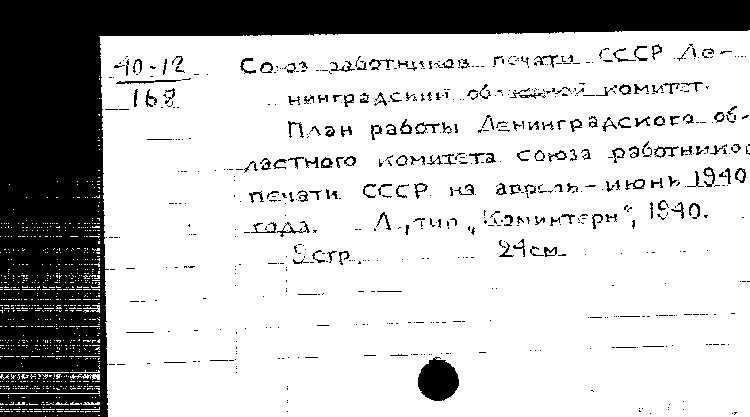 40-12
168
Союз работников печати СССР Ле-
нинградский областной комитет.
План работы Ленинградского об-
ластного комитета союза работников
печати СССР на апрель-июнь 1940
года. Л., тип „Коминтерн“, 1940.
8 стр. 24 см